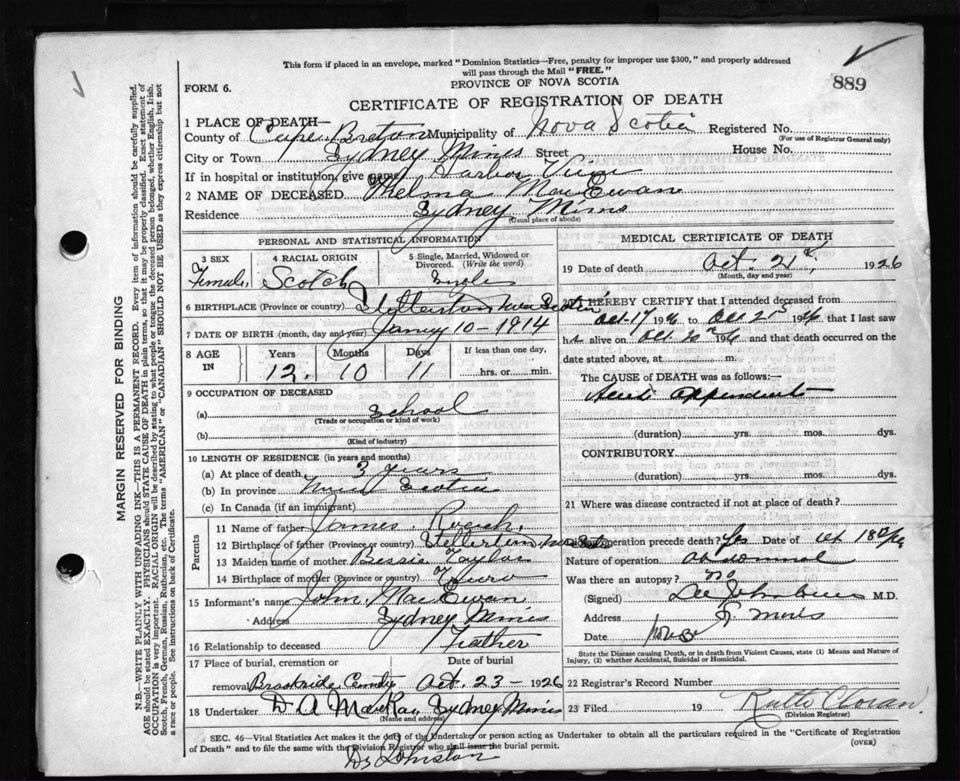 This form if placed in an envelope, marked "Dominion Statistics—Free, penalty for improper use $300," and properly addressed
will pass through the Mail "FREE."
889
FORM 6.
PROVINCE OF NOVA SCOTIA
CERTIFICATE OF REGISTRATION OF DEATH
1 PLACE OF DEATH—
County of Cape Breton Municipality of Nova Scotia Registered No.
(For use of Registrar General only)
City or Town Sydney Mines Street House No.
If in hospital or institution, give name Harbor View
2 NAME OF DECEASED Thelma MacEwan
Residence Sydney Mines
(Usual place of abode)
PERSONAL AND STATISTICAL INFORMATION
3 SEX
Female
4 RACIAL ORIGIN
Scotch
5 Single, Married, Widowed or
Divorced. (Write the word)
Single
6 BIRTHPLACE (Province or country) Stellerton Nova Scotia
7 DATE OF BIRTH (month, day and year) 10 - 1914
8 AGE IN
Years 12
Months 10
Days 11
If less than one day,
hrs. or min.
9 OCCUPATION OF DECEASED
(a) School
(Trade or occupation or kind of work)
(b)
(Kind of industry)
10 LENGTH OF RESIDENCE (in years and months)
(a) At place of death 3 years
(b) In province Scotia
(c) In Canada (if an immigrant)
Parents
11 Name of father James Roach
12 Birthplace of father (Province or country) Stellerton
13 Maiden name of mother Bessie Taylor
14 Birthplace of mother (Province or country) Truro
15 Informant's name John MacEwan
Address Sydney Mines
16 Relationship to deceased Father
17 Place of burial, cremation or
removal
Date of burial
Oct. 23 - 1926
18 Undertaker D A MacKay Sydney Mines
(Name and address)
MEDICAL CERTIFICATE OF DEATH
19 Date of death Oct. 21 1926
(Month, day and year)
20 I HEREBY CERTIFY that I attended deceased from
Oct 17 1926 to Oct 21 1926 that I last saw
her alive on Oct 1926 and that death occurred on the
date stated above, at m.
The CAUSE OF DEATH was as follows:—
Acute appendicitis
(duration) yrs. mos. dys.
CONTRIBUTORY
(duration) yrs. mos. dys.
21 Where was disease contracted if not at place of death?
Did operation precede death? Yes Date of Oct 18
Nature of operation abdominal
Was there an autopsy? no
(Signed) M.D.
Address S. Mines
Date
State the Disease causing Death, or in death from Violent Causes, state (1) Means and Nature of
Injury, (2) whether Accidental, Suicidal or Homicidal.
22 Registrar's Record Number
23 Filed 19
(Division Registrar)
SEC. 46—Vital Statistics Act makes it the duty of the Undertaker or person acting as Undertaker to obtain all the particulars required in the "Certificate of Registration
of Death" and to file the same with the Division Registrar who shall issue the burial permit.
(OVER)
Dr Johnston
MARGIN RESERVED FOR BINDING
N.B.—WRITE PLAINLY WITH UNFADING INK—THIS IS A PERMANENT RECORD. Every item of information should be carefully supplied.
AGE should be stated EXACTLY. PHYSICIANS should STATE CAUSE OF DEATH in plain terms, so that it may be properly classified. Exact statement of
OCCUPATION is very important. RACIAL ORIGIN will be described by stating to what people or tongue the deceased person belonged, whether English, Irish,
Scotch, French, German, Russian, Ruthenian, etc. The terms "AMERICAN" or "CANADIAN" SHOULD NOT BE USED as they express citizenship but not
a race or people. See instructions on back of Certificate.